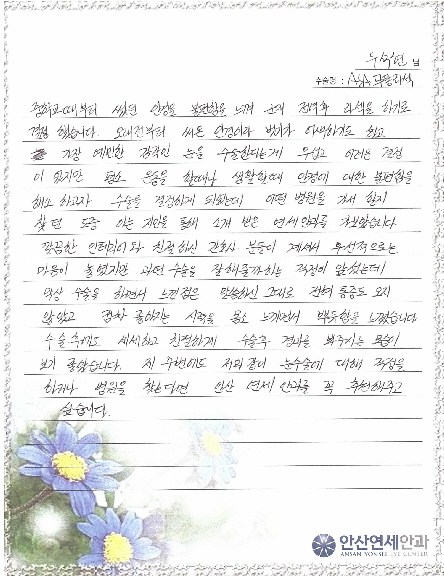 님
수술명 : ASA 무통라식
중학교때부터 썼던 안경을 불편함을 느껴 군대 전역후 라식을 하기로
결정 했습니다. 오래전부터 써온 안경이라 벗기가 어색하기도 하고
가장 예민한 감각인 눈을 수술한다는게 무섭고 어려운 결정
이 었지만 평소 운동을 할때나 생활할때 안경에 대한 불편함을
해소 하고자 수술을 결정하게 되었는데 어떤 병원을 가서 할지
찾던 도중 아는 지인을 통해 소개 받은 연세안과를 가보았습니다
깔끔한 인테리어와 친절하신 간호사 분들이 계셔서 우선적으로는
마음이 놓였지만 과연 수술을 잘해줄까하는 걱정이 앞섰는데
막상 수술을 하면서 느낀점은 말씀하신 그대로 전혀 통증도 오지
않았고 점차 좋아지는 시력을 몸소 느끼면서 뿌듯함을 느꼈습니다
수술 후에도 세세하고 친절하게 수술후 경과를 봐주시는 모습이
보기 좋았습니다. 제 주변에도 저와같이 눈수술에 대해 걱정을
하거나 병원을 찾는다면 안산 연세 안과를 꼭 추천해주고
싶습니다.
안산연세안과
ANSAN YONSEI EYE CENTER